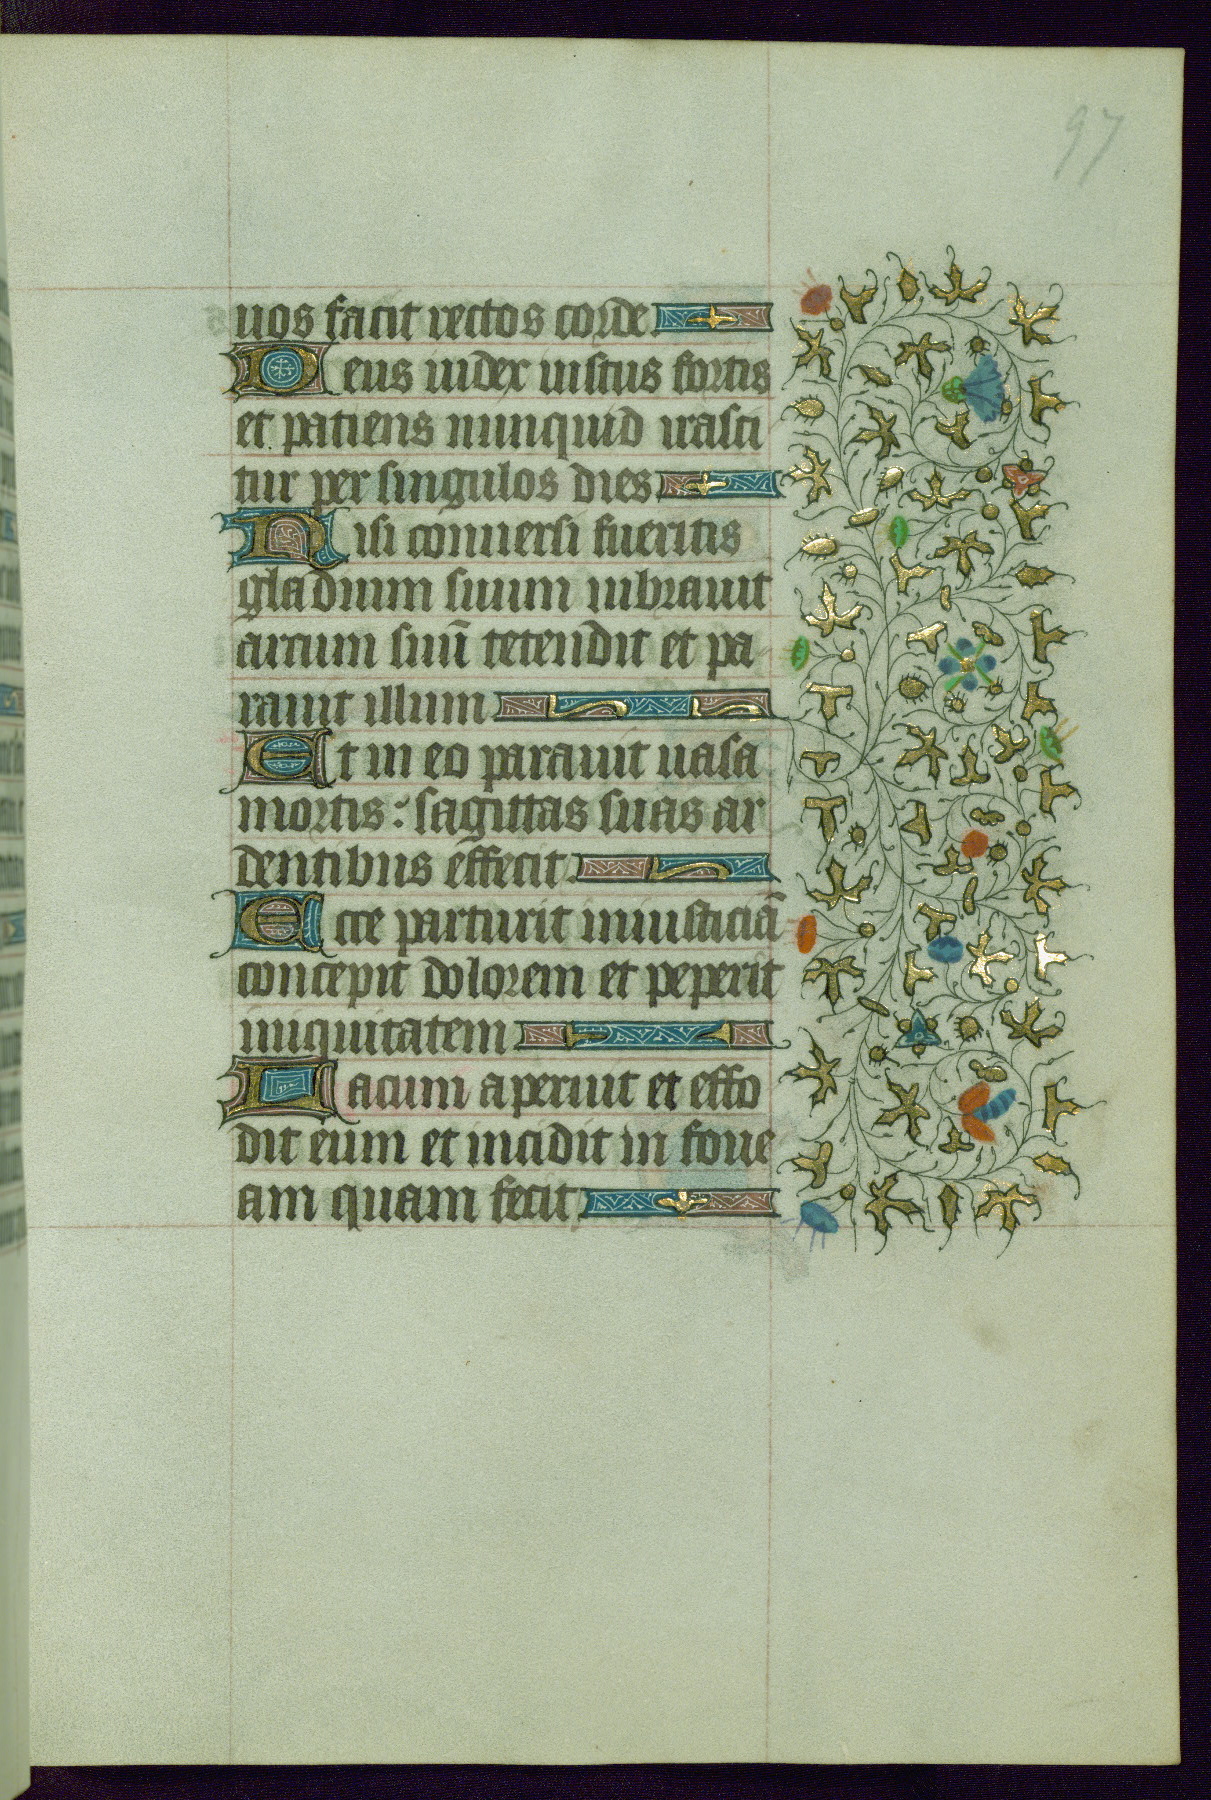 97
uos facit rectos corde
Deus iudex iustus fortis
et patiens nunquid irasci
tur per singulos dies
Nisi conuersi fueritis
gladium suum uibrauit
arcum suū tetendit et pa
rauit illum
Et in eo parauit uasa
mortis : sagittas suas ar
dentibus effecit
Ecce parturit iniusticiā
concepit dolorem et peperit
iniquitatem
Lacum aperuit et effo
dit eum et incidit in foue
am quam fecit